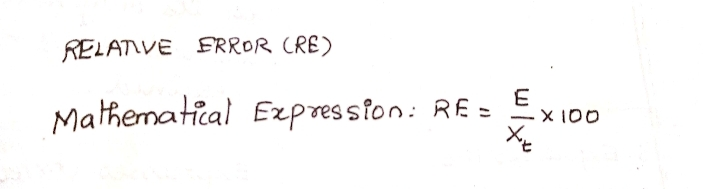 RELATIVE ERROR (RE)
Mathematical Expression: RE = E/Xt × 100